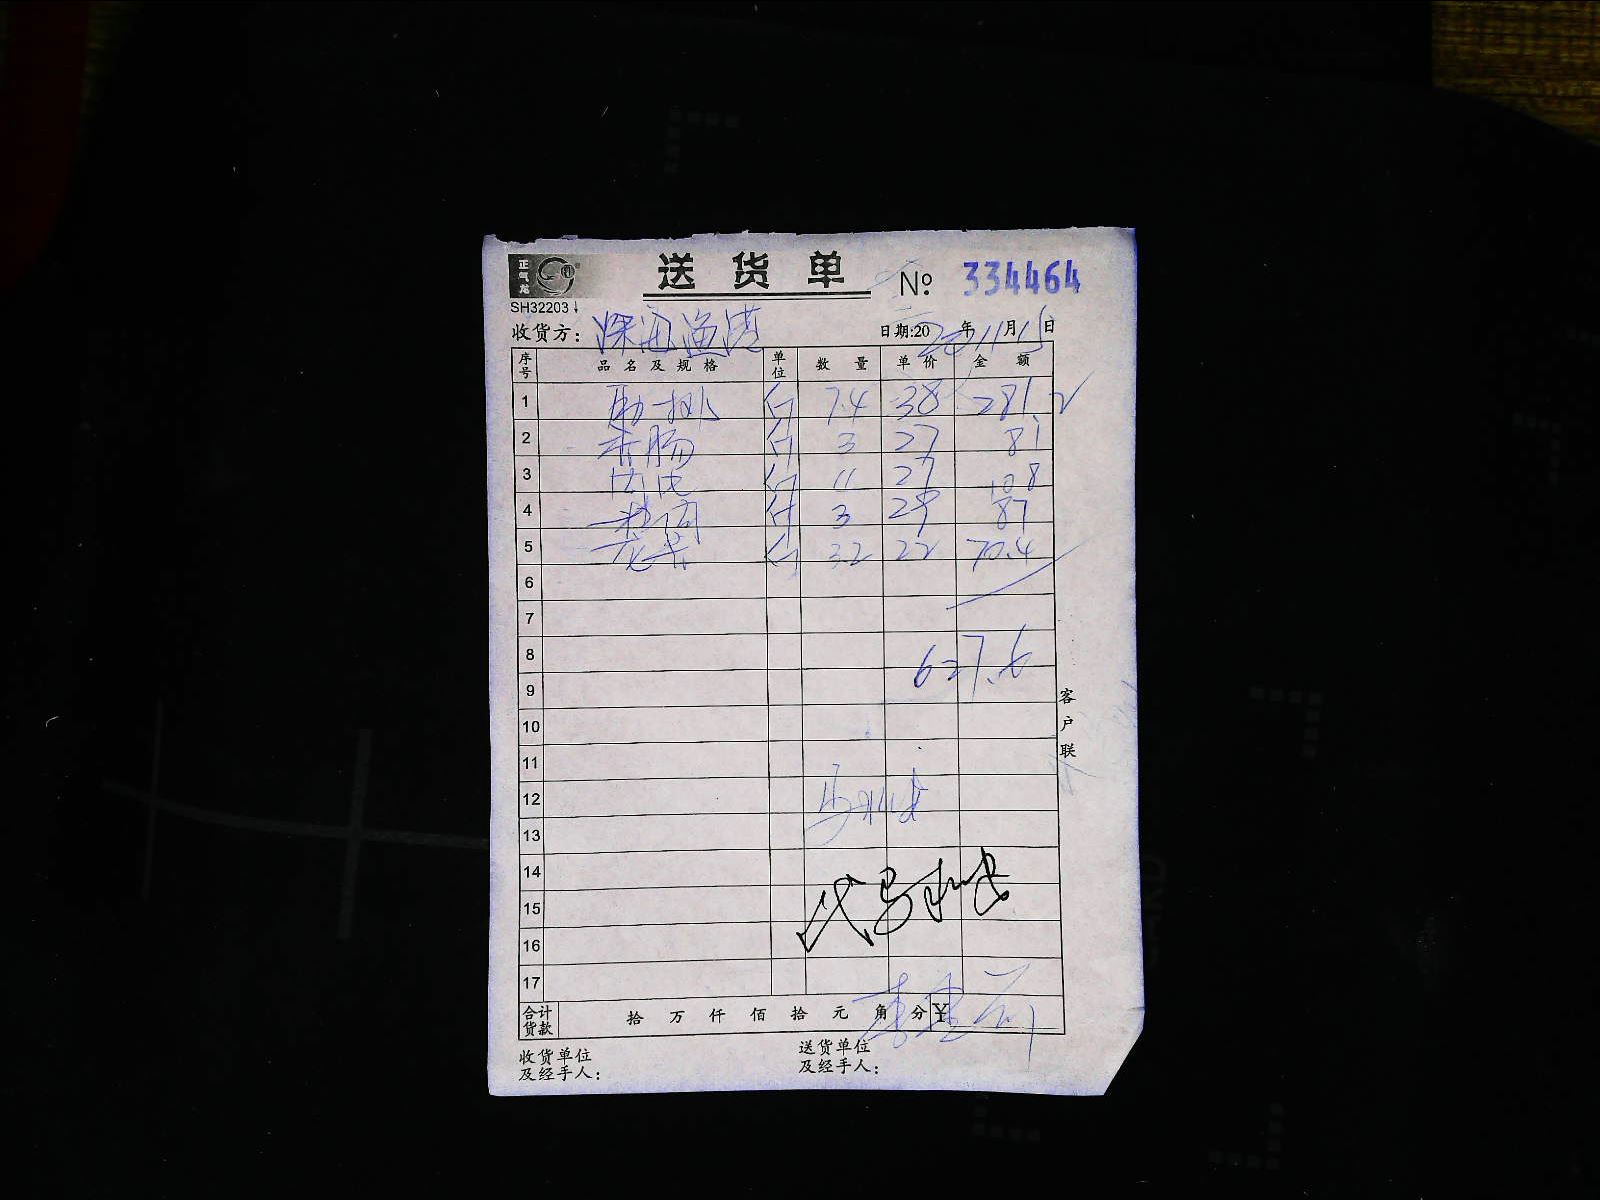 正气龙
送货单 № 334464
SH32203
收货方：深海渔港 日期:2020年11月15日
序号 品名及规格 单位 数量 单价 金额
1 斤 7.4 38 281.2
2 香肠 斤 3 27 81
3 斤 11 27 108
4 斤 3 29 87
5 斤 3.2 22 70.4
6
7
8 627.6
9
10
11
12
13
14
15
16
17
客户联
合计货款 拾 万 仟 佰 拾 元 角 分 ¥
收货单位及经手人： 送货单位及经手人：